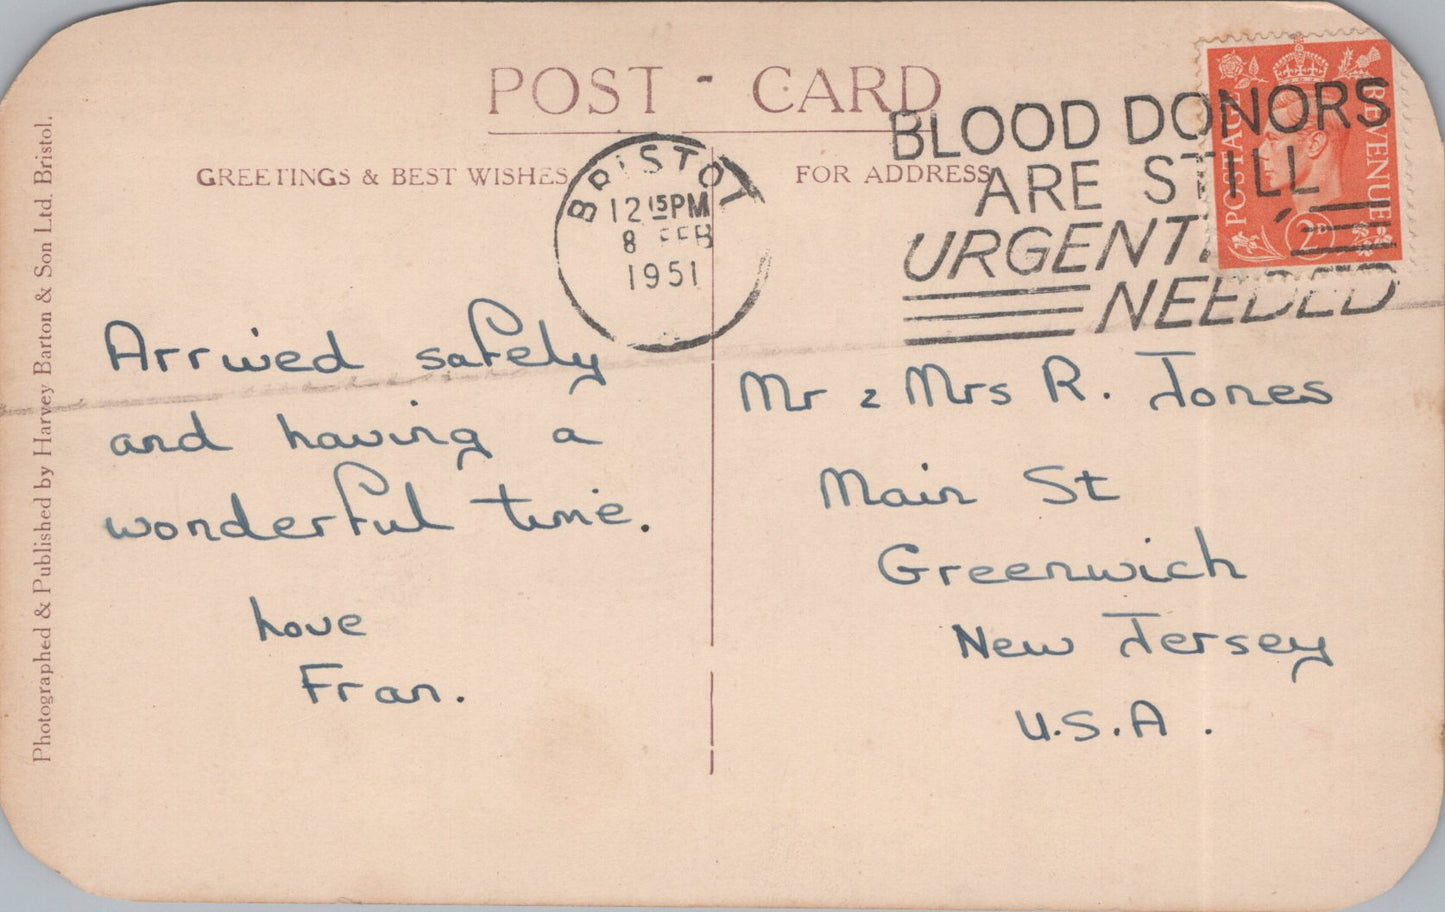 POST - CARD
GREETINGS & BEST WISHES
FOR ADDRESS
BRISTOL
12 15 PM
8 FEB
1951
BLOOD DONORS
ARE STILL
URGENT
NEEDED
POSTAGE
REVENUE
2D
Arrived safely
and having a
wonderful time.
Love
Fran.
Mr & Mrs R. Jones
Main St
Greenwich
New Jersey
U.S.A.
Photographed & Published by Harvey Barton & Son Ltd. Bristol.